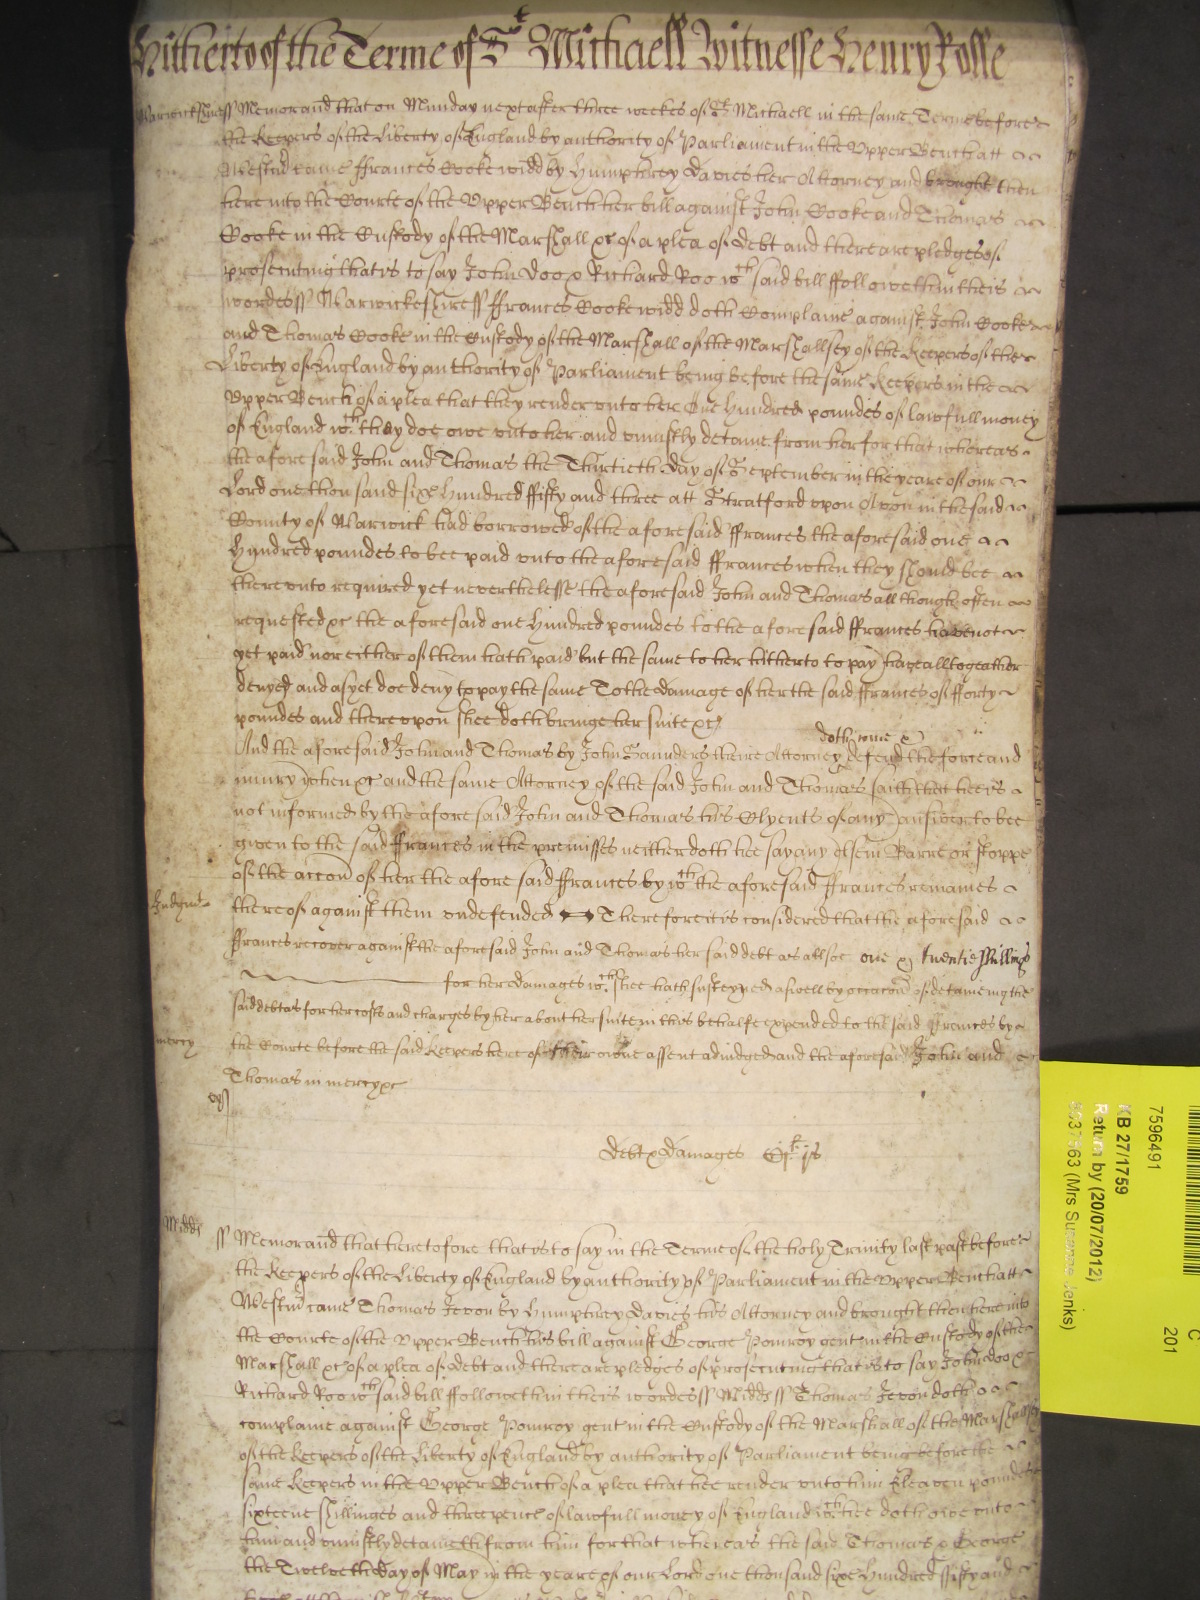 Hitherto of the Terme of St Michaell Witnesse Henry Rolle
Warwicksheir ss Memorand that on Munday next after three weekes of St Michaell in the same Terme before
the Keepers of the Liberty of England by authority of Parliament in the Upper Bench att
Westmr came ffrances Cooke widd by Humphrey Davies her Attorney and brought then
here into the Courte of the Upper Bench her bill against John Cooke and Thomas
Cooke in the Custody of the Marshall xc of a plea of debt and there are pledges of
prosecuting that is to say John Doo & Richard Roo wch said bill ffolloweth in theis
wordes ss Warwicksheir ss ffrances Cooke widd doth Complaine against John Cooke
and Thomas Cooke in the Custody of the Marshall of the Marshallsey of the Keepers of the
Liberty of England by authority of Parliament being before the same Keepers in the
Upper Bench of a plea that they render unto her One hundred poundes of lawfull money
of England wch they doe owe unto her and uniustly detaine from her for that whereas
the aforesaid John and Thomas the Thirtieth day of September in the yeare of our
Lord one thousand sixe hundred ffifty and three att Stratford upon Avon in the said
County of Warwick had borrowed of the aforesaid ffrances the aforesaid one
hundred poundes to bee paid unto the aforesaid ffrances when they should bee
thereunto required yet neverthelesse the aforesaid John and Thomas allthough often
requested xc the aforesaid one hundred poundes to the aforesaid ffrances have not
yet paid nor either of them hath paid but the same to her hitherto to pay have alltogeather
denyed and as yet doe deny to pay the same To the damage of her the said ffrances of fforty
poundes and thereupon shee doth bringe her suite xc
doth come &
And the aforesaid John and Thomas by John Saunders theire Attorney defend the force and
iniury when xc and the same Attorney of the said John and Thomas saith that hee is
not informed by the aforesaid John and Thomas his Clyents of any answer to bee
given to the said ffrances in the premisses neither doth hee say any thinge in Barre or stoppe
of the accon of her the aforesaid ffrances by wch the aforesaid ffrances remaines
Judgmt
thereof against them undefended Therefore it is considered that the aforesaid
ffrances recover against the aforesaid John and Thomas her said debt as allsoe one & twentie shillings
for her damages wch shee hath susteyned aswell by occacon of detaineing the
said debt as for her costs and charges by her about her suite in this behalfe expended to the said ffrances by
mercy
the Courte before the said Keepers here of their owne assent adiudged and the aforesaid John and
Thomas in mercy xc
debt & damages
Midds ss Memorand that heretofore that is to say in the Terme of the holy Trinity last past before
the Keepers of the Liberty of England by authority of Parliament in the Upper Bench att
Westmr came Thomas Jevon by Humphrey Davies his Attorney and brought then here into
the Courte of the Upper Bench his bill against George Pomroy gent in the Custody of the
Marshall xc of a plea of debt and there are pledges of prosecuting that is to say John doo &
Richard Roo wch said bill ffolloweth in theis wordes ss Midds ss Thomas Jevon doth
complaine against George Pomroy gent in the Custody of the Marshall of the Marshallsey
of the Keepers of the Liberty of England by authority of Parliament being before the
same Keepers in the Upper Bench of a plea that hee render unto him Eleaven poundes
sixteene shillinges and three pence of lawfull money of England wch hee doth owe unto
him and uniustly detaineth from him for that whereas the said Thomas & George
the Twelveth day of May in the yeare of our Lord one thousand sixe hundred ffifty and
C
201
7596491
KB 27/1759
Return by (20/07/2012)
(Mrs Susanne Jenks)